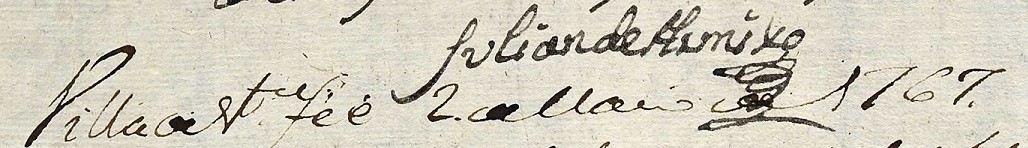 Julian de Armijo
Villa de Stta fee 2. de Maio de 1767.